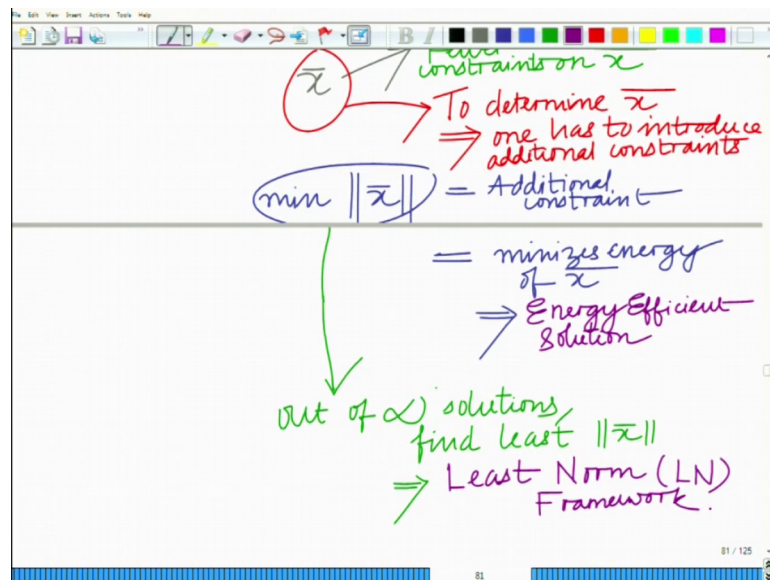 File Edit View Insert Actions Tools Help
B I
constraints on x
x̄
To determine x̄
⇒ one has to introduce
additional constraints
min ||x̄|| = Additional
constraint
= minizes energy
of x̄
⇒ Energy Efficient
Solution
out of ∞ solutions,
find least ||x̄||
⇒ Least Norm (LN)
Framework.
81 / 125
81